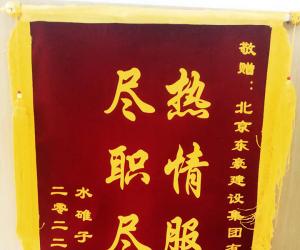 敬赠：北京东豪建设集团有
热情服
尽职尽
水碓子
二零二二